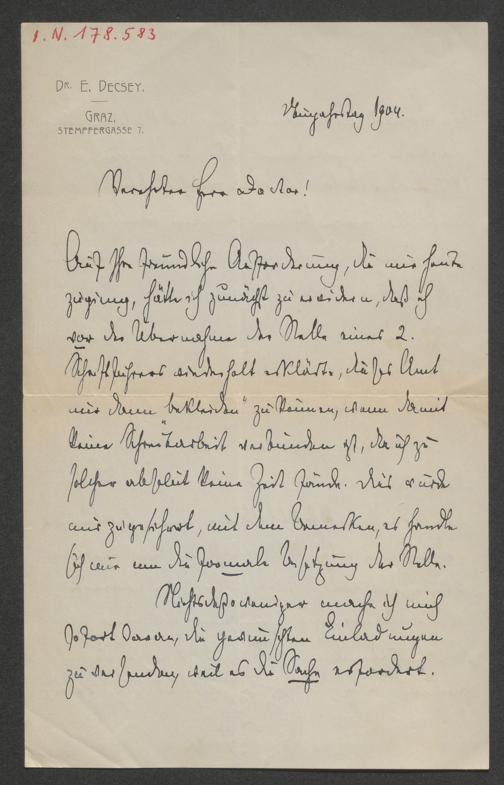 I.N. 178.583
DR. E. DECSEY.
GRAZ,
STEMPFERGASSE 7.
Neujahrstag 1904.
Verehrter Herr Doctor!
Auf Ihre freundliche Aufforderung, die mir heute
zuging, hätte ich zunächst zu erwidern, daß ich
vor der Übernahme der Stelle eines 2.
Schriftführers wiederholt erklärte, dieses Amt
nur dann „bekleiden“ zu können, wenn damit
keine Schreibarbeit verbunden ist, da ich zu
solcher absolut keine Zeit fände. Dies wurde
mir zugesichert, mit dem Bemerken, es handle
sich nur um die formale Besetzung der Stelle.
Nichtsdestoweniger mache ich mich
sofort daran, die gewünschten Einladungen
zu versenden, weil es die Sache erfordert.